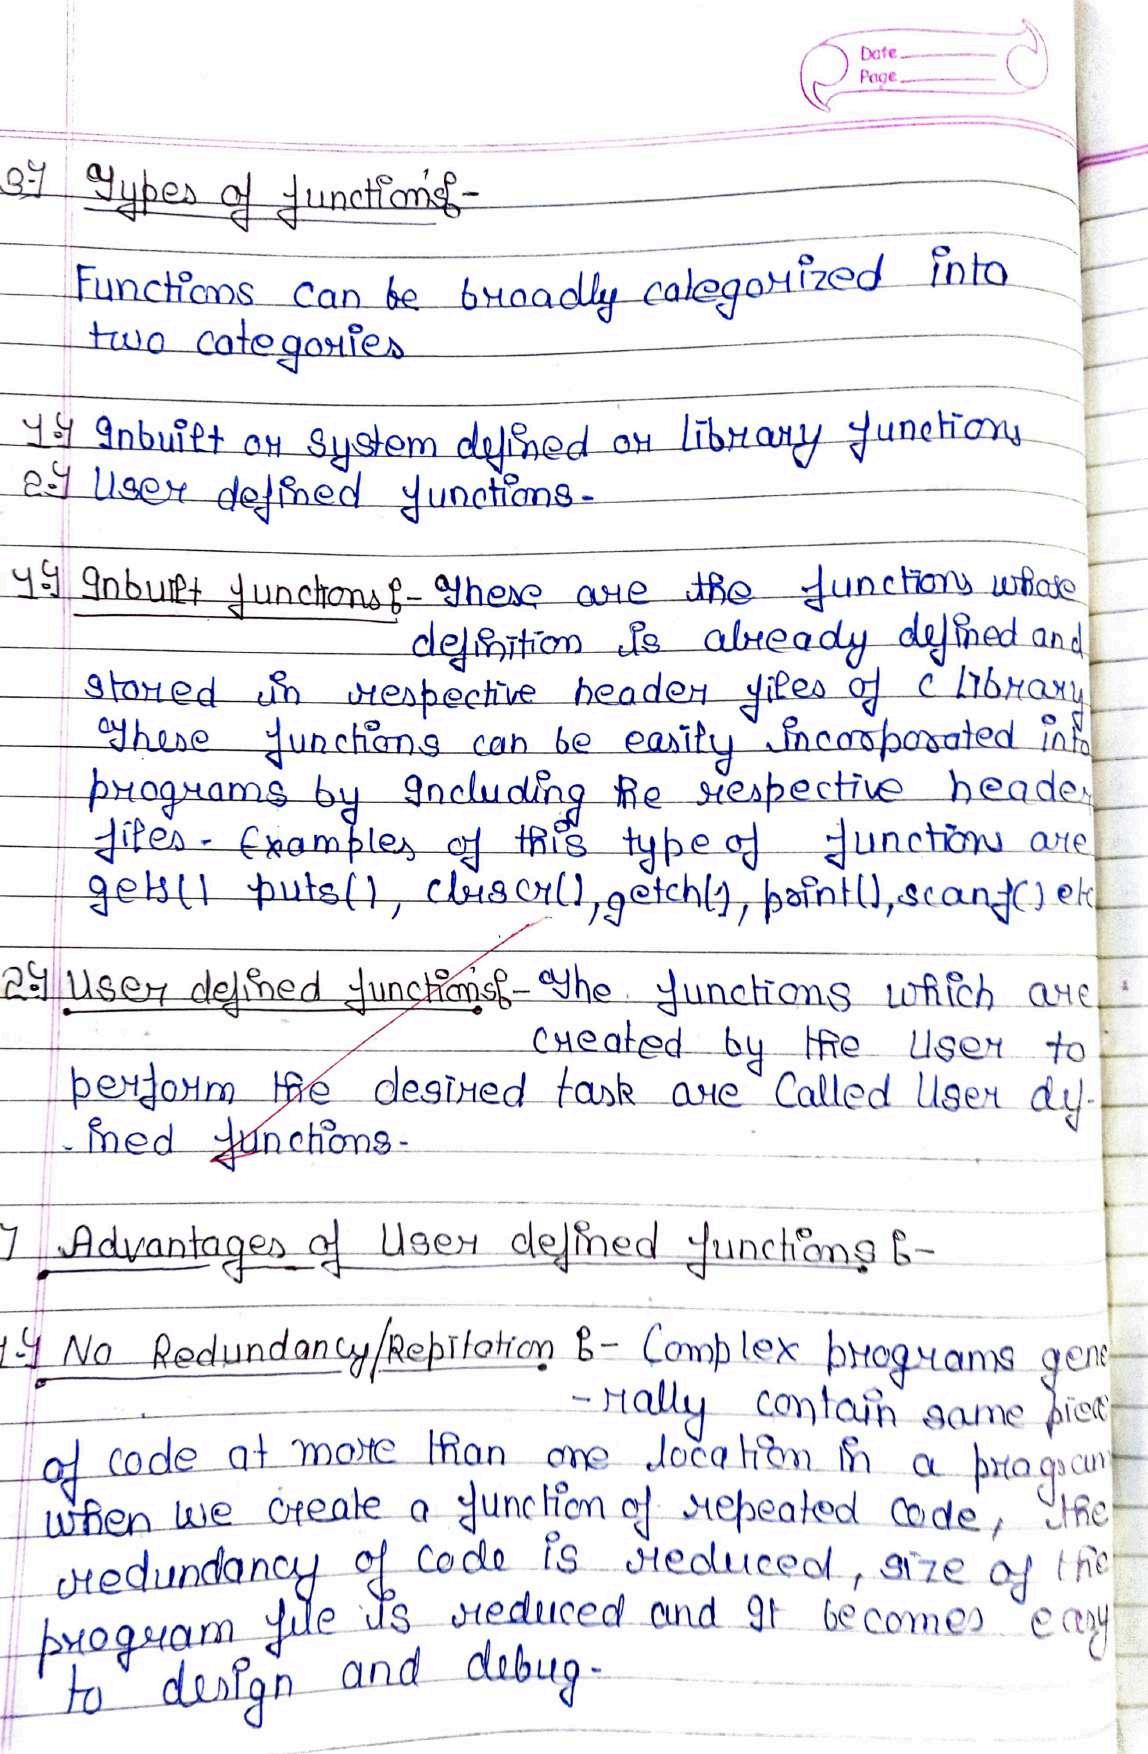 Date
Page
3.) Types of functions:-
Functions can be broadly categorized into
two categories
1.) Inbuilt or system defined or library functions
2.) User defined functions.
1.) Inbuilt functions:- These are the functions whose
definition is already defined and
stored in respective header files of C library
These functions can be easily incorporated into
programs by including the respective header
files. Examples of this type of functions are
gets() puts(), clrscr(), getch(), print(), scanf() etc
2.) User defined functions:- The functions which are
created by the user to
perform the desired task are called user def-
-ined functions.
Advantages of user defined functions:-
1.) No Redundancy/Repitation:- Complex programs gene
-rally contain same piece
of code at more than one location in a program
when we create a function of repeated code, the
redundancy of code is reduced, size of the
program file is reduced and it becomes easy
to design and debug.